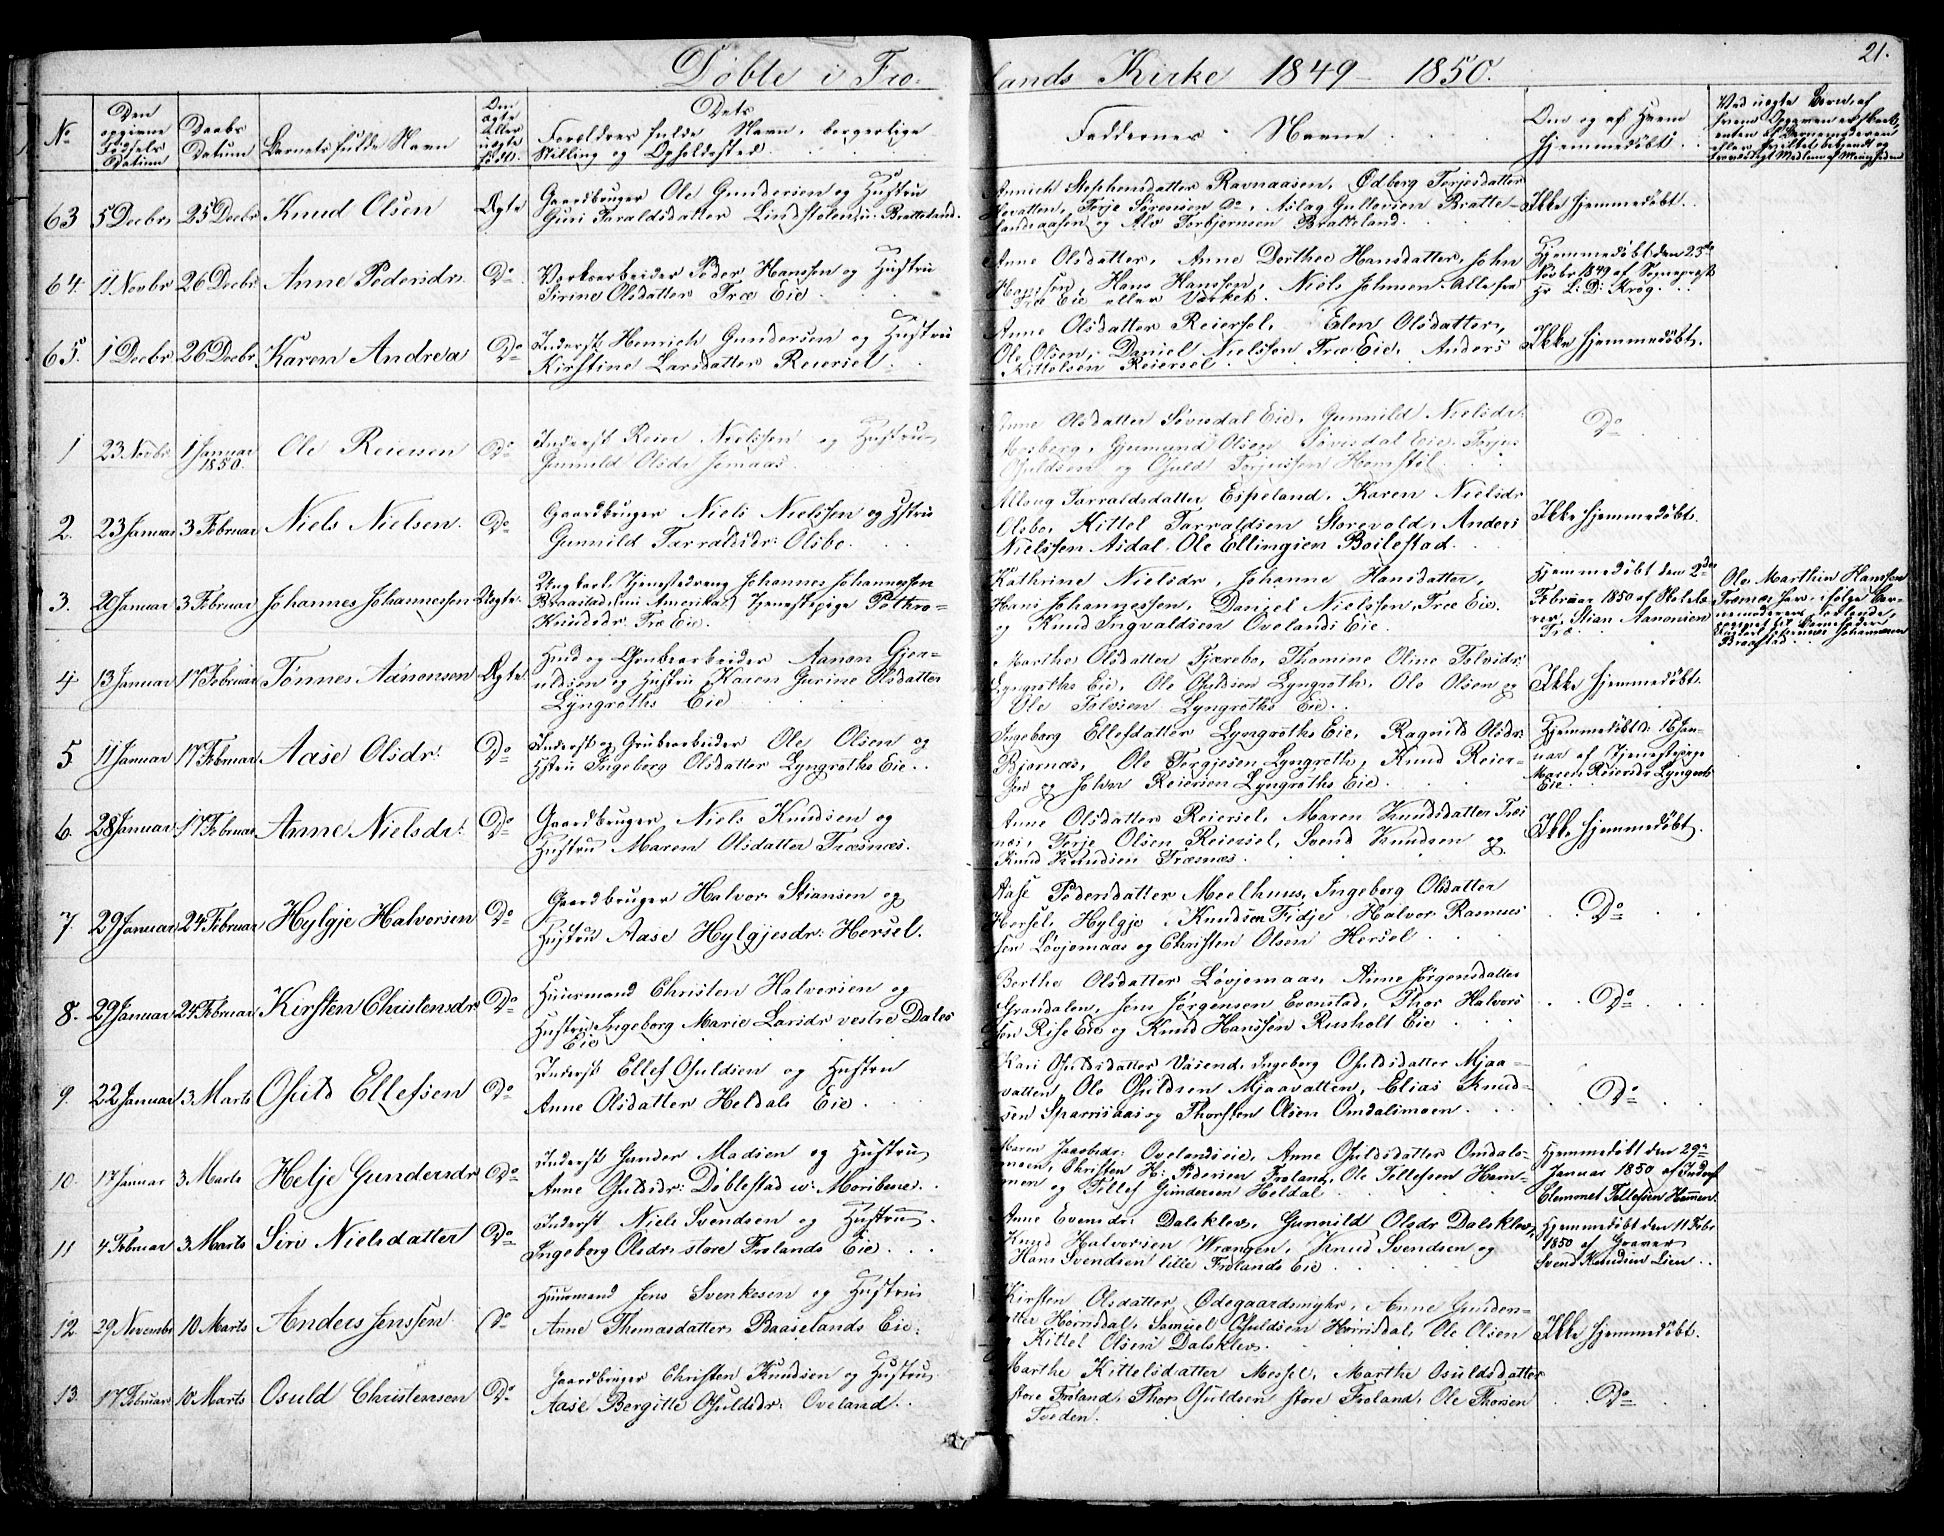 21.
Døbte i Fro-
lands Kirke 1849 - 1850.
No
Den opgivne Fødsels Datum
Daabs Datum
Barnets fulde Navn
Om ægte eller uægte født.
Dets Forældres fulde Navn, borgerlige Stilling og Opholdssted.
Faddernes Navne.
Om og af hvem hjemmedøbt.
63 5 Decbr. 25 Decbr. Knud Olsen Ægte
Gaardbruger Ole Gundersen og Hustru
Guri Taraldsdatter Lindstolend: Bratteland.
Annich Stephensdatter Ravnaasen, Ødberg Terjesdatter
Hovatten, Terje Sørensen Do, Aslag Gullovsen Bratte-
landsaasen og Alv Torbjørnsen Bratteland.
Ikke hjemmedøbt.
64. 11 Novbr. 26 Decbr. Anne Pedersdr. Do
Værksarbeider Peder Hanssen og Hustru
Sirine Olsdatter Fræ Eie.
Anne Olsdatter, Anne Dorthea Hansdatter, John
Hanssen, Hans Hanssen, Niels Johnsen. Alle fra
Fræ Eie eller Værket.
Hjemmedøbt den 25de
Novbr. 1849 af Sognepræst
Hr. L: D: Krog.
65. 1 Decbr. 26 Decbr. Karen Andrea Do
Inderst Henrich Gundersen og Hustru
Kirstine Larsdatter Reiersel.
Anne Olsdatter Reiersel, Elen Olsdatter,
Ole Olsen, Daniel Nielssen Fræ Eie, Anders
Kittelsen Reiersel.
Ikke hjemmedøbt.
1 23 Novbr. 1 Januar 1850. Ole Reiersen Do
Inderst Reier Nielssen og Hustru
Gunnild Olsdr. Jomaas.
Anne Olsdatter Søvesdal Eie, Gunnild Nielsdr.
Mosberg, Gjumund Olsen Søvesdal Eie, Terjus
Osuldsen og Osuld Terjussen Homstøl.
Do
2. 23 Januar 3 Februar Niels Nielsen. Do
Gaardbruger Niels Nielssen og Hstru
Gunnild Tarraldsdr. Olsbo.
Allaug Tarraldsdatter Espeland, Karen Nielsdr
Olsbo, Kittel Tarraldsen Storevold, Anders
Nielssen Asdal, Ole Ellingsen Boilestad.
Ikke hjemmedøbt.
3. 20 Januar 3 Februar Johannes Johannessen Uægte.
Ungkarl, Tjenestedreng Johannes Johannessen
Braastad, (nu i Amerika) Tjenestepige Pethro-
Knudsdr. Fræ Eie.
Kathrine Nielsdr, Johanne Hansdatter,
Hans Johannessen, Daniel Nielssen, Fræ Eie.
og Knud Ingvaldsen Ovelands Eie.
Hjemmedøbt den 2den
Februar 1850 af Skolelæ-
rer, Stian Aanonsen
Fræ
Ole Marthin Hanssen
Braastad.
4. 13 Januar 17 Februar Tønnes Aanonsen Ægte
Huusm: og Grubearbeider Aanon Gjeru-
uldsen og Hustru Karen Gurine Olsdatter
Lyngrøths Eie
Marthe Olsdatter Fjærebo, Thomine Oline Tolvsdr.
Lyngrøths Eie, Ole Osuldsen Lyngrøth, Ole Olsen og
Ole Tolvsen Lyngrøths Eie.
Ikke hjemmedøbt.
5 11 Januar 17 Februar Aase Olsdr. Do
Inderst og Grubearbeider Ole Olsen og
Hstru Ingeborg Olsdatter Lyngrøths Eie.
Ingeborg Ellefsdatter Lyngrøths Eie, Ragnild Olsdr.
Bjørnæs, Ole Torgjesen Lyngrøth, Knud Reier-
sen og John Reiersen Lyngrøths Eie.
Hjemmedøbt d. 16 Ja-
nuar af Tjenestepige
Maren Reiersdr Lyngrøths
Eie.
6. 28 Januar 17 Februar Anne Nielsdr. Do
Gaardbruger Niels Knudsen og
Hustru Maren Olsdatter Fræsnæs.
Anne Olsdatter Reiersel, Maren Knudsdatter Fræs
næs, Terje Olsen Reiersel, Svend Knudsen og
Knud Knudsen Fræsnæs.
Ikke hjemmedøbt.
7. 29 Januar 24 Februar Hylgje Halvorsen Do
Gaardbruger Halvor Stiansen og
Hustru Aase Hylgjesdr. Hersel.
Aase Pedersdatter Moelhuus, Ingeborg Olsdatter
Hersel, Hylgje Knudsen Fidje, Halvor Rasmus
sen Løvjomaas og Christen Olsen Hersel
Do
8. 29 Januar 24 Februar Kirsten Christensdr Do
Huusmand Christen Halvorsen og
Hustru Ingeborg Marie Larsdr. vestre Dales
Eie
Berthe Olsdatter Løvjomaas, Anne Jørgensdatter
Grandalen, Jens Jørgensen Evenstad, Thor Halvors
sen Rise Eie og Knud Hanssen Rusholt Eie
Do
9. 22 Januar 3 Marts Osuld Ellefsen Do
Inderst Ellef Osuldsen og Hustru
Anne Olsdatter Heldals Eie.
Kari Osuldsdatter Vasend, Ingeborg Osuldsdatter Mjaa-
vatten, Ole Osuldsen Mjaavatten, Elias Knud-
sen Sparrisaas og Thorsten Olsen Omdalsmoen.
Do
10. 17 Januar 3 Marts Helje Gundersdr Do
Inderst Gunder Madsen og Hustru
Anne Osuldsdr: Døblestad
Maren Jacobsdr: Ovelandseie, Anne Osuldsdatter Omdals-
moen, Christen H: Pedersen Froland, Ole Tellefsen Ham-
men og Tellef Gundersen Heldal
Hjemmedøbt den 29de
Januar 1850 af Inderst
Clemmet Tellefsen Hammen.
11 4 Februar 3 Marts Siri Nielsdatter Do
Inderst Niels Svendsen og Hustru
Ingeborg Olsdr. store Frolands Eie.
Anne Evensdr. Dalsklev, Gunnild Olsdr Dalsklev,
Knud Halvorsen Wrangen, Knud Svendsen og
Hans Svendsen lille Frolands Eie.
Hjemmedøbt den 11 Febr.
1850 af Graver
Svend Knudsen Lien.
12 29 Novembr 10 Marts Anders Jenssen Do
Huusmand Jens Svenkesen og Hustru
Anne Thomasdatter Baaselands Eie.
Kirsten Olsdatter Ødegaardsmyhr, Anne Gunders-
datter Hørrisdal, Samuel Osuldsen Hørrisdal, Ole Olsen
og Kittel Olsen Dalsklev.
Ikke hjemmedøbt.
13. 17 Februar 10 Marts Osuld Christensen Do
Gaardbruger Christen Knudsen og Hustru
Aase Bergitte Osuldsdr: Oveland.
Marthe Kittelsdatter Messel, Marthe Osuldsdatter
store Froland, Thor Osuldsen store Froland, Ole Thorsen
Tveden.
Do